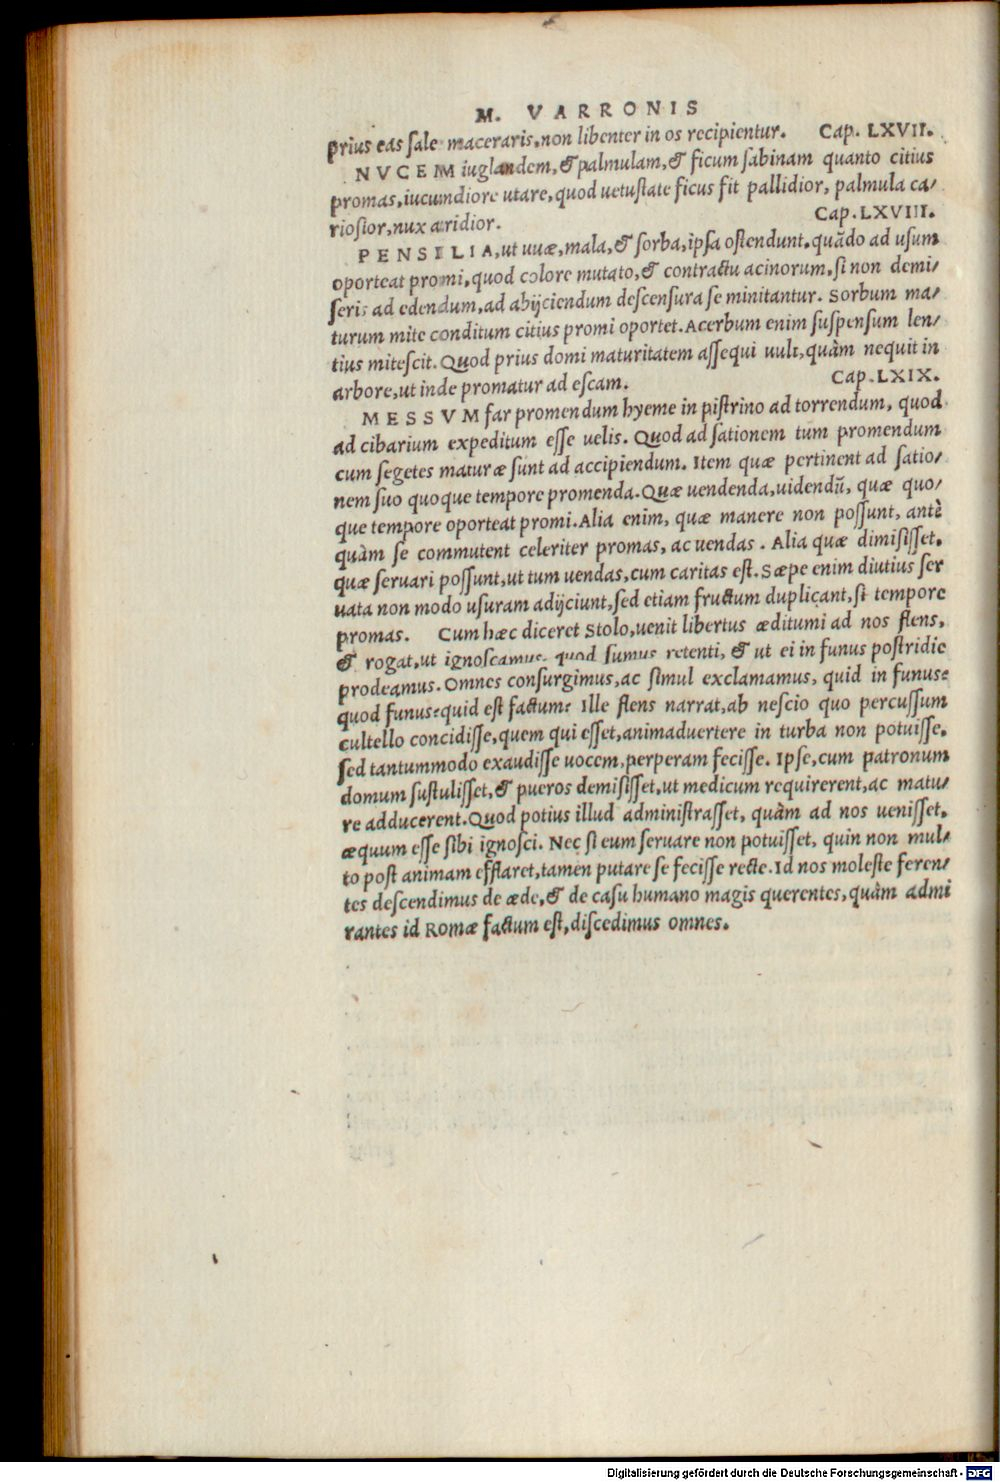 M. VARRONIS
prius eas sale maceraris, non libenter in os recipientur. Cap. LXVII.
NVCEM iuglandem, & palmulam, & ficum sabinam quanto citius
promas, iucundiore utare, quod uetustate ficus fit pallidior, palmula ca/
riosior, nux aridior. Cap. LXVIII.
PENSILIA, ut uuæ, mala, & sorba, ipsa ostendunt, quãdo ad usum
oporteat promi, quod colore mutato, & contractu acinorum, si non demi/
seris ad edendum, ad abijciendum descensura se minitantur. Sorbum ma/
turum mite conditum citius promi oportet. Acerbum enim suspensum len/
tius mitescit. Quod prius domi maturitatem assequi uult, quàm nequit in
arbore, ut inde promatur ad escam. Cap. LXIX.
MESSVM far promendum hyeme in pistrino ad torrendum, quod
ad cibarium expeditum esse uelis. Quod ad sationem tum promendum
cum segetes maturæ sunt ad accipiendum. Item quæ pertinent ad satio/
nem suo quoque tempore promenda. Quæ uendenda, uidendũ, quæ quo/
que tempore oporteat promi. Alia enim, quæ manere non possunt, antè
quàm se commutent celeriter promas, ac uendas. Alia quæ dimisisset,
quæ seruari possunt, ut tum uendas, cum caritas est. Sæpe enim diutius ser
uata non modo usuram adijciunt, sed etiam fructum duplicant, si tempore
promas. Cum hæc diceret Stolo, uenit libertus æditumi ad nos flens,
& rogat, ut ignoscamus, quod sumus retenti, & ut ei in funus postridie
prodeamus. Omnes consurgimus, ac simul exclamamus, quid in funus?
quod funus? quid est factum? Ille flens narrat, ab nescio quo percussum
cultello concidisse, quem qui esset, animaduertere in turba non potuisse,
sed tantummodo exaudisse uocem, perperam fecisse. Ipse, cum patronum
domum sustulisset, & pueros demisisset, ut medicum requirerent, ac matu/
re adducerent. Quod potius illud administrasset, quàm ad nos uenisset,
æquum esse sibi ignosci. Nec si eum seruare non potuisset, quin non mul/
to post animam efflaret, tamen putare se fecisse recte. Id nos moleste feren/
tes descendimus de æde, & de casu humano magis querentes, quàm admi
rantes id Romæ factum est, discedimus omnes.
Digitalisierung gefördert durch die Deutsche Forschungsgemeinschaft - DFG